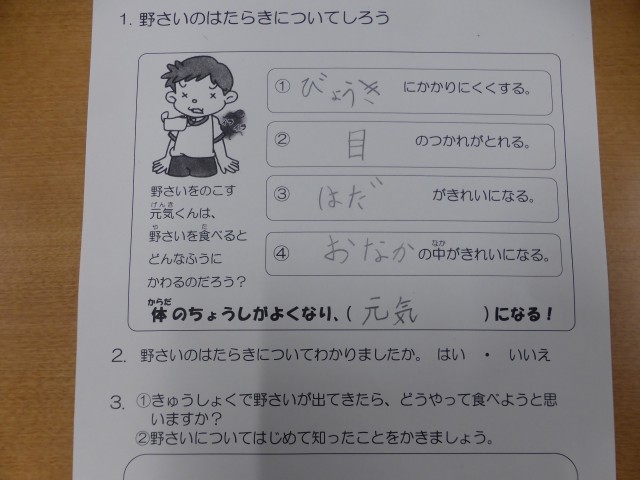 1. 野さいのはたらきについてしろう
① びょうき にかかりにくくする。
② 目 のつかれがとれる。
③ はだ がきれいになる。
④ おなか の中がきれいになる。
なか
野さいをのこす
げんき
元気くんは、
や た
野さいを食べると
どんなふうに
かわるのだろう?
からだ
体のちょうしがよくなり、( 元気 )になる!
2. 野さいのはたらきについてわかりましたか。 はい ・ いいえ
3. ①きゅうしょくで野さいが出てきたら、どうやって食べようと思
いますか?
②野さいについてはじめて知ったことをかきましょう。